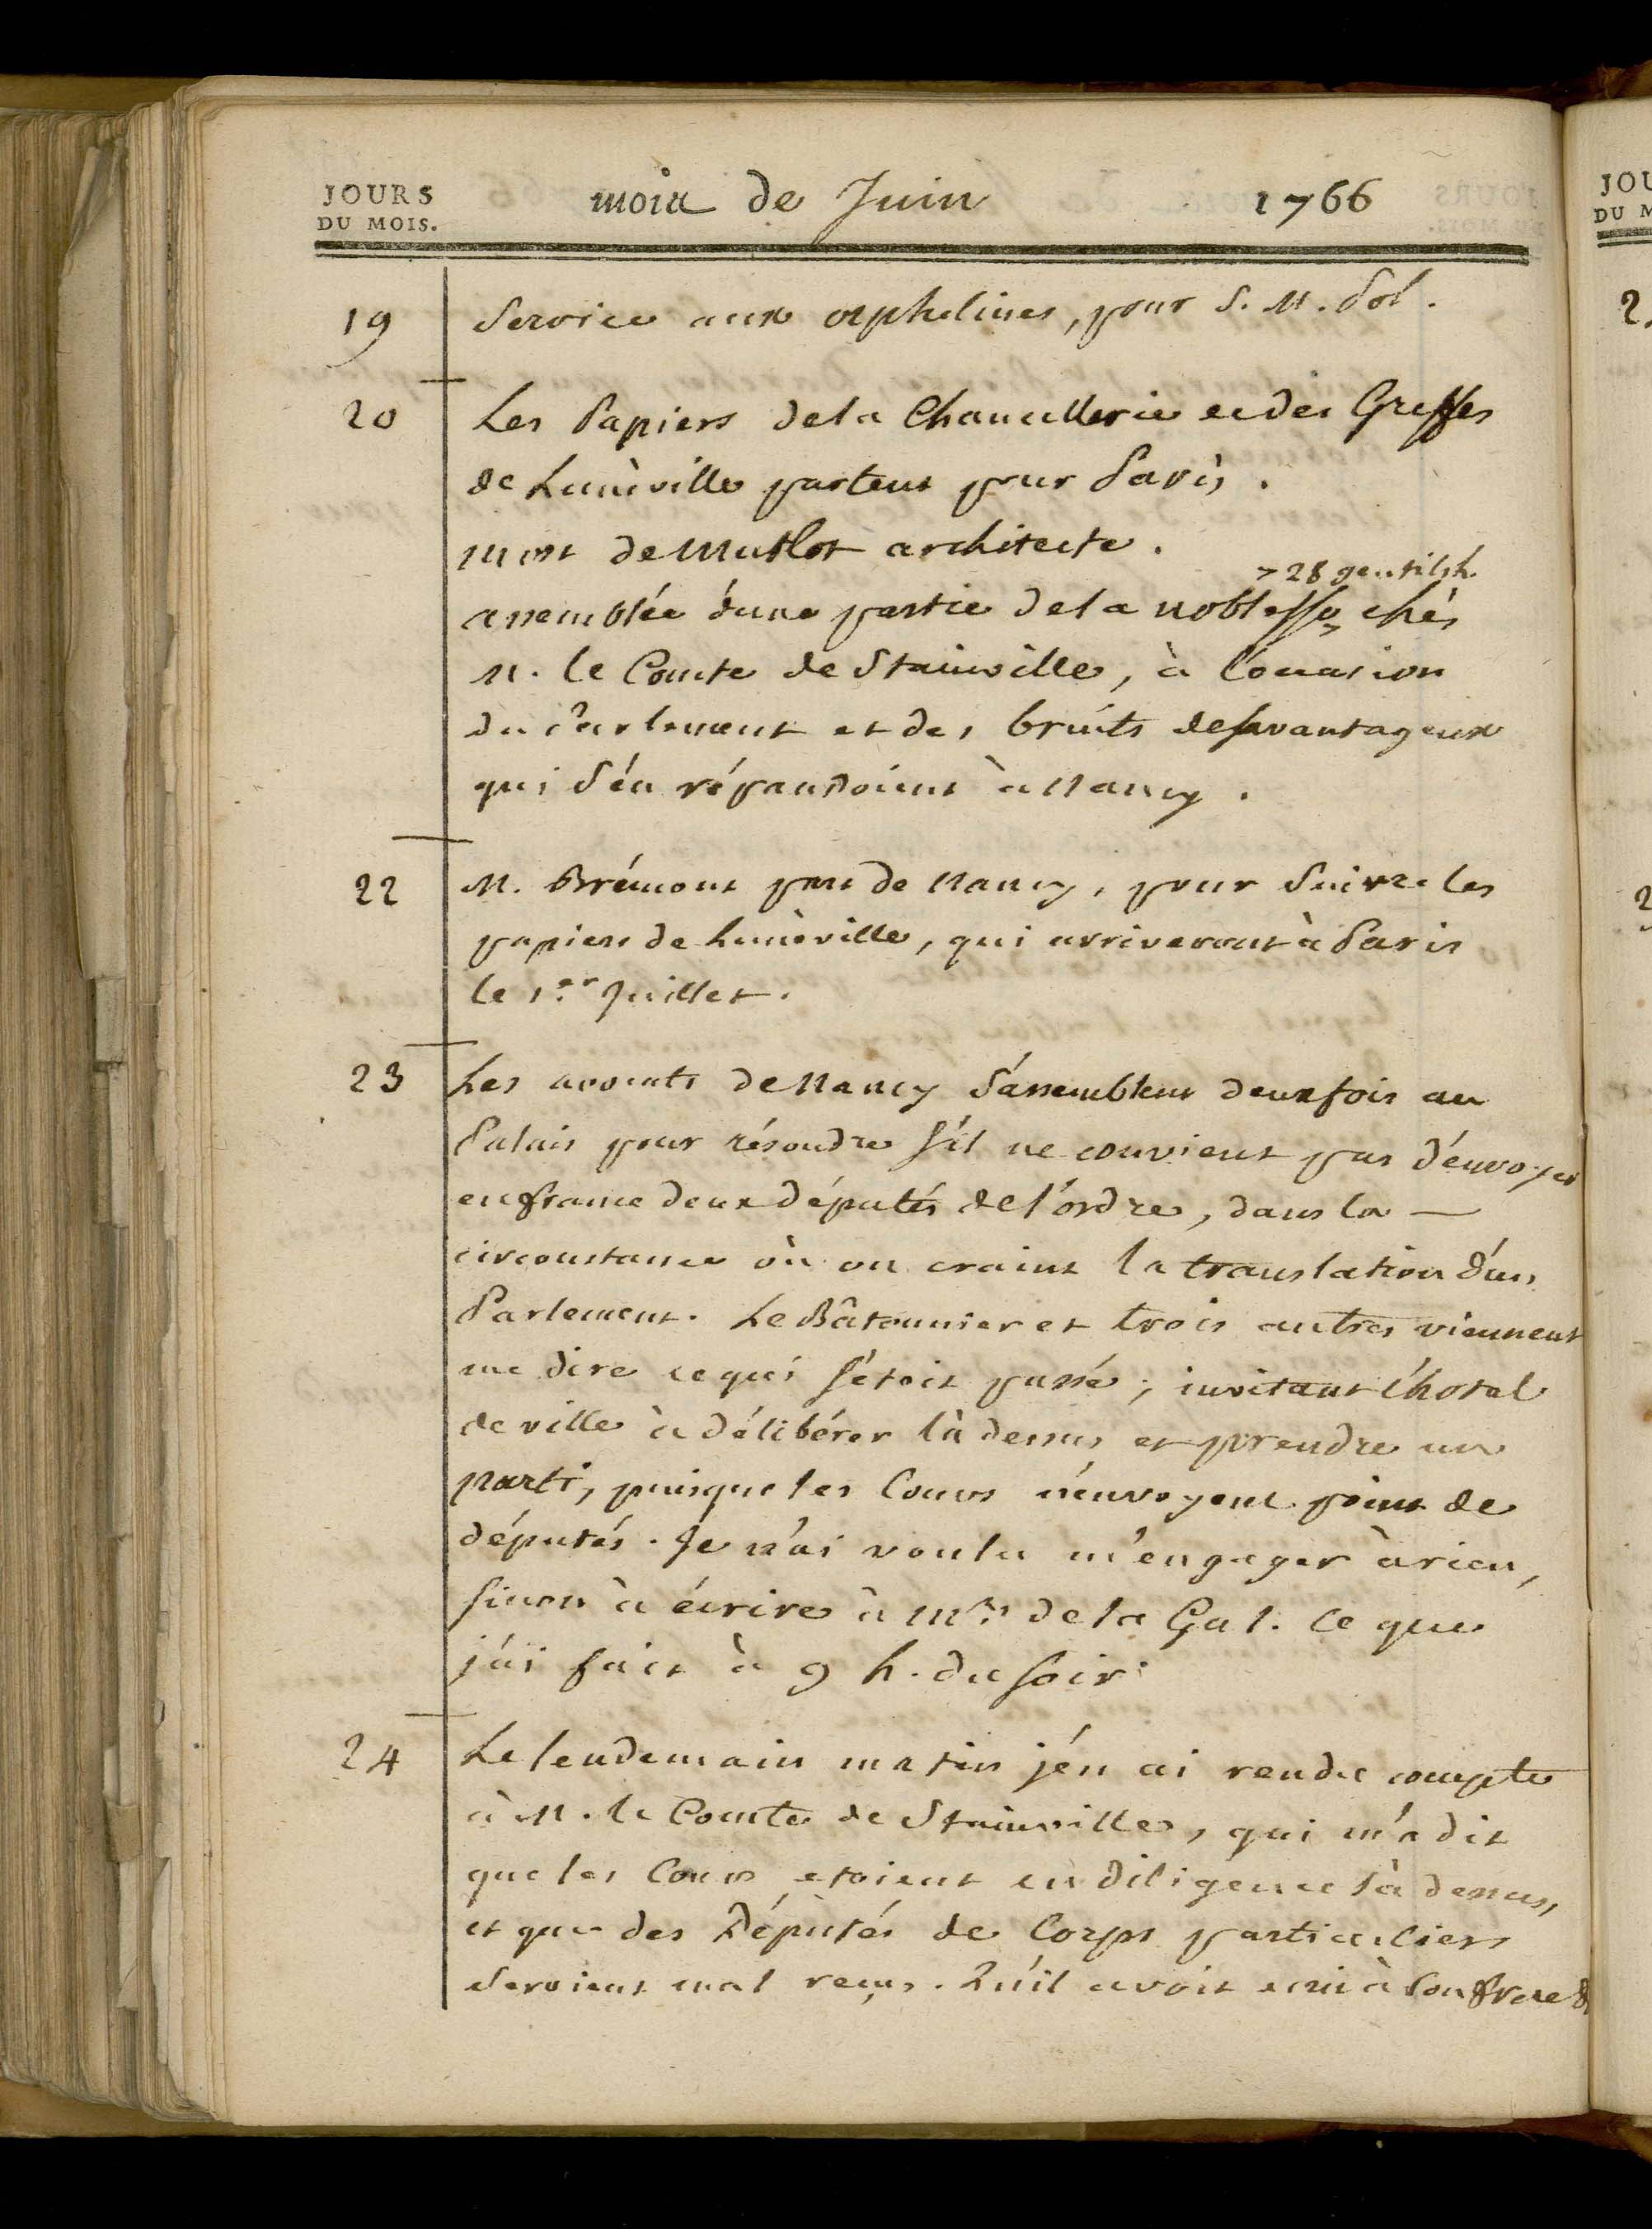 JOURS
DU MOIS.
mois de Juin 1766
19 Service aux orphelines, pour S. M. Pol.
20 Les Papiers dela Chancellerie et des Greffes
de Lunéville partent pour Paris.
mort de Mutlot architecte.
> 28 gentilsh.
assemblée d'une partie dela noblesse > chés
M. le Comte de Stainville, à l'occasion
du Parlement et des bruits desavantageux
qui s'én répandoient à Nancy.
22 M. Brémont part de Nancy, pour suivre les
papiers de Lunéville, qui arriveront à Paris
le 1.er Juillet.
23 Les avocats de Nancy s'assemblent deux fois au
Palais pour résoudre s'il ne convient pas d'envoyer
en france deux députés de l'ordre, dans la —
circonstance où on craint la translation d'un
Parlement. Le Bâtonnier et trois autres viennent
me dire ce qui s'étoit passé; invitant l'hotel
de ville à délibérer là dessus et prendre un
parti, puisque les Cours n'envoyent point de
députés. Je n'ai voulu m'engager à rien,
sinon à écrire à Mr. de la Gal. ce que
j'ai fait à 9 h. du soir.
24 Le lendemain matin j'én ai rendu compte
à M. le Comte de Stainville, qui m'a dit
que les Cours etoient en diligence là dessus,
et que des Députés de Corps particuliers
seroient mal reçus. Qu'il avoit ecrit à son frere &
JOU
DU M